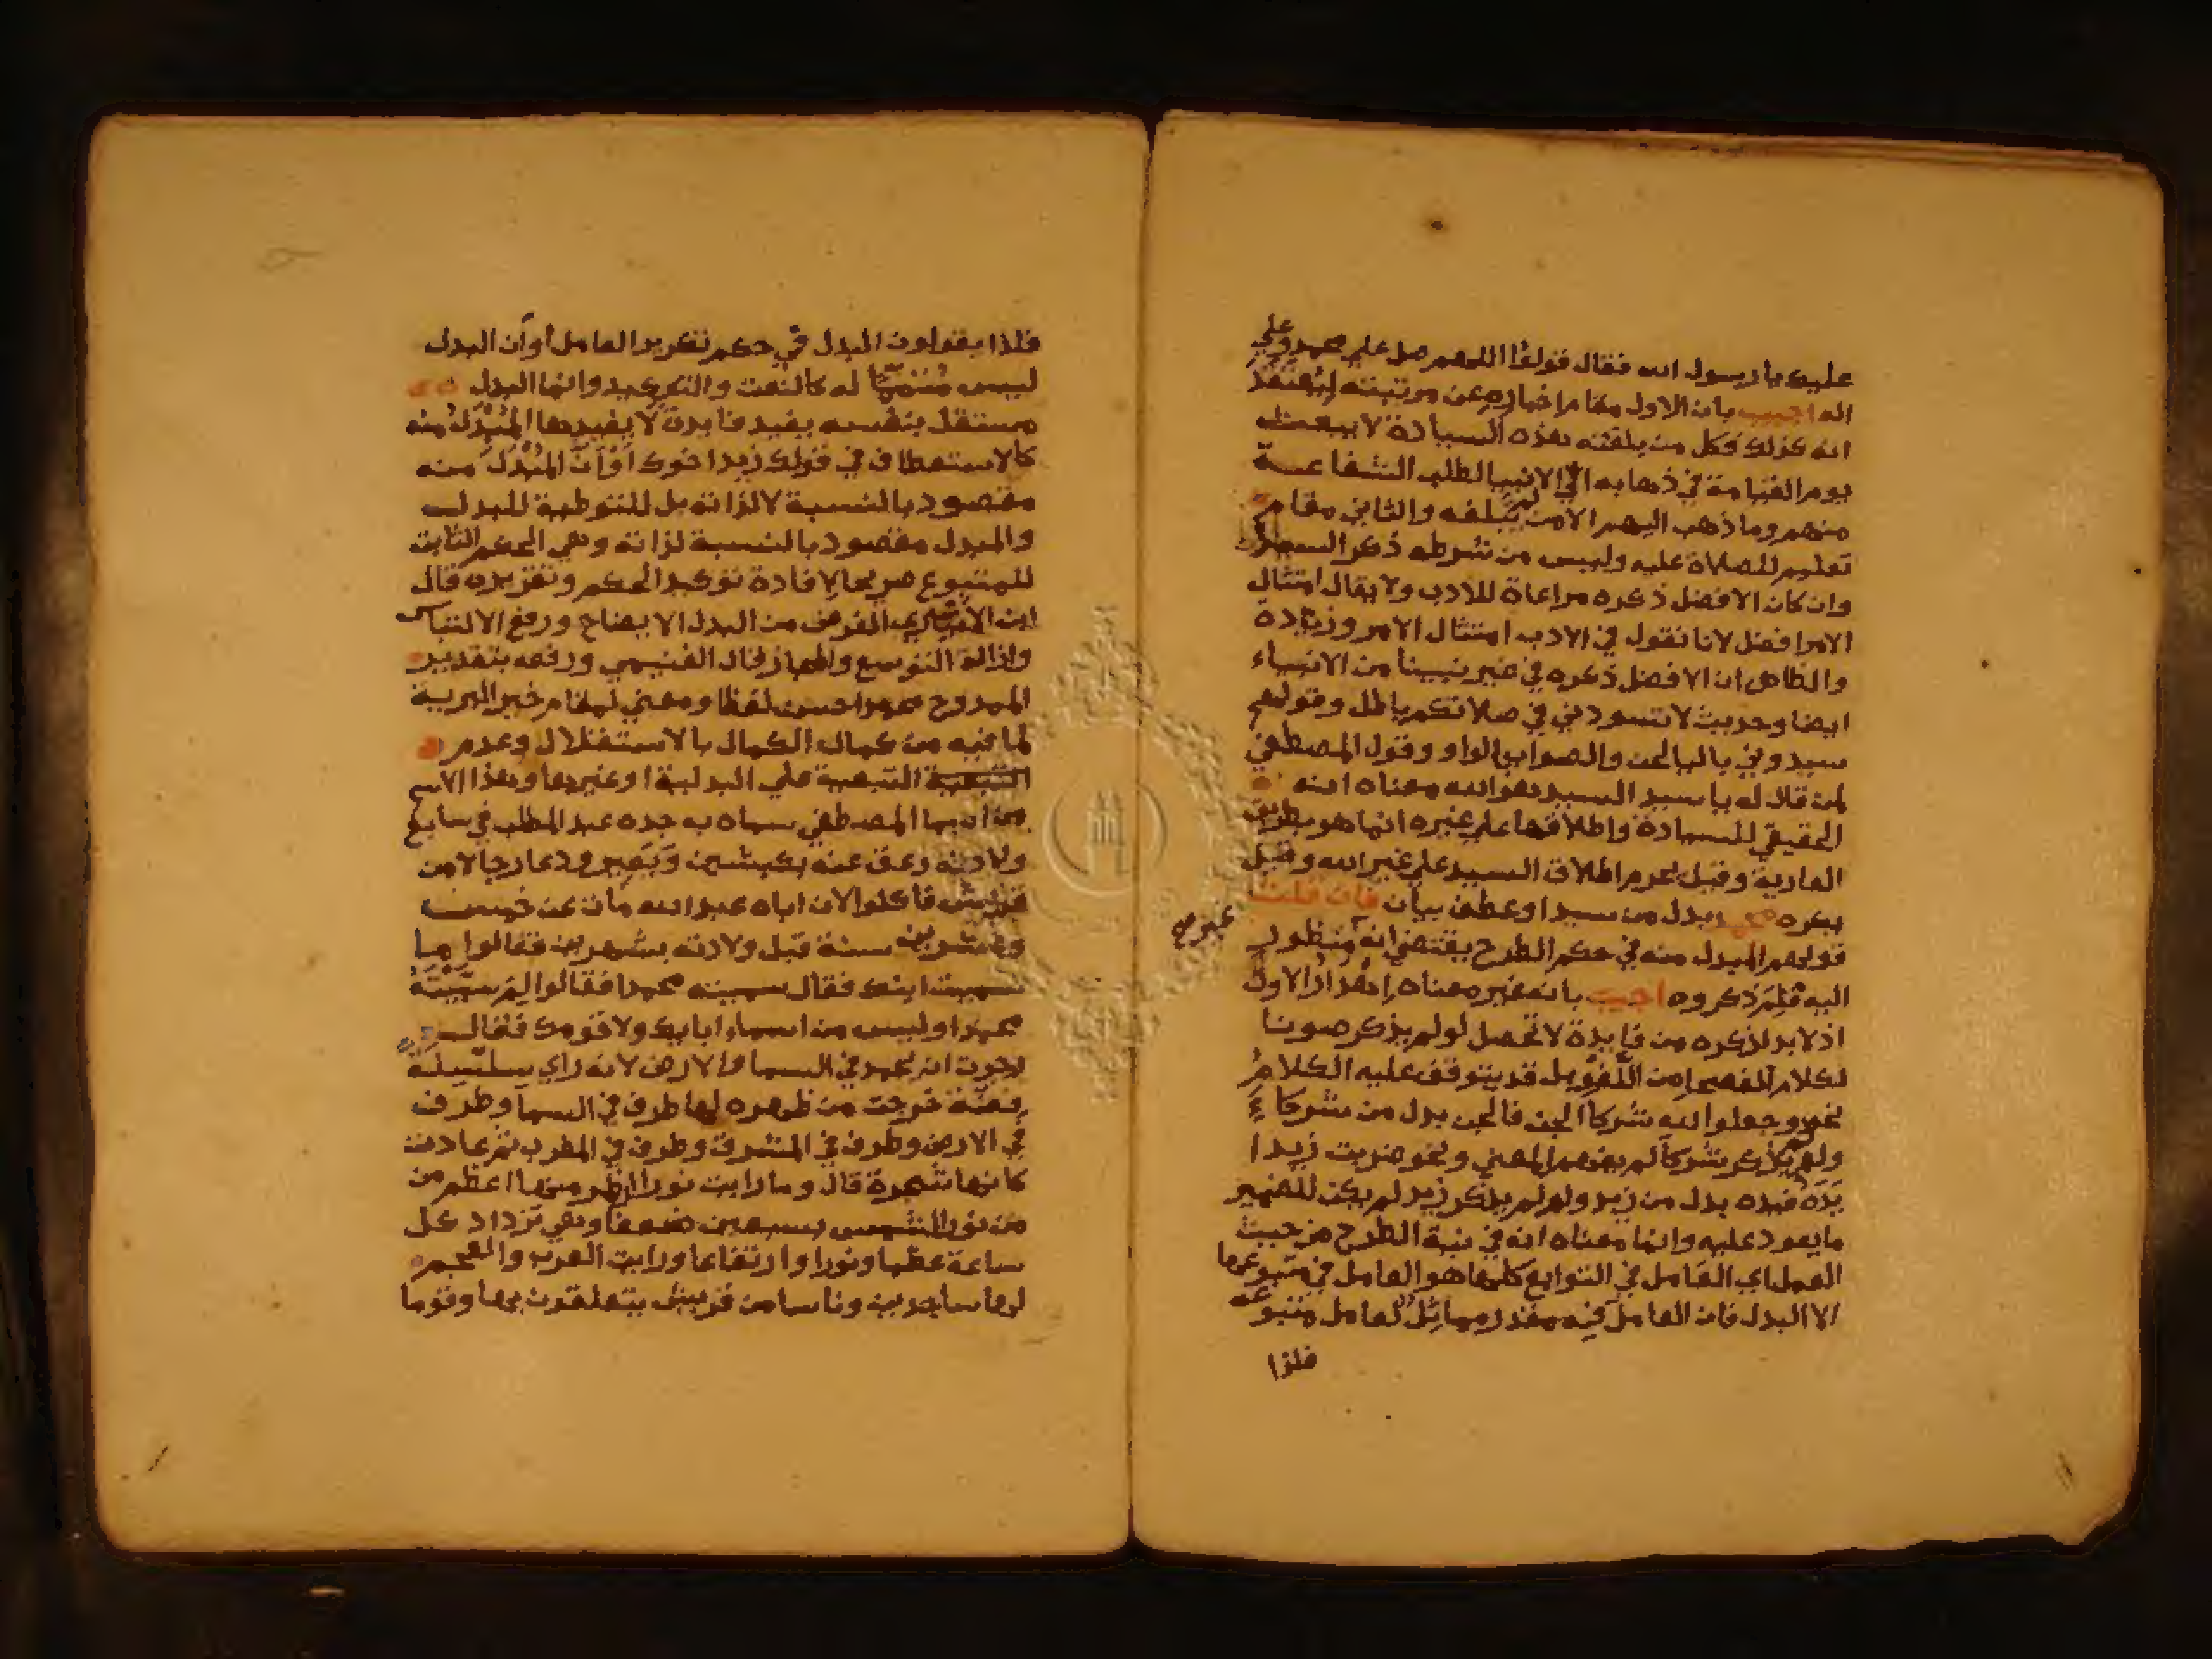 عليك يا رسول الله فقال قولوا اللهم صل على محمد وعلى
اله اجيب بان الاول مقام اخباره عن مرتبته ليعتقد
انه كذلك فكل من بلغته هذه السيادة لا يبعث
يوم القيامة في ذهابه الى الانبيا لطلب الشفاعة
منهم وما ذهب اليهم الا من لم يبلغه والثاني مقام
تعليم للصلاة عليه وليس من شرطه ذكر السيد
وان كان الافضل ذكره مراعاة للادب ولا يقال امتثال
الامر افضل لانا نقول في الادب امتثال الامر وزيادة
والظاهر ان الافضل ذكره في غير نبينا من الانبياء
ايضا وحديث لا تسودني في صلاتكم باطل وقولهم
سيدوني باليا لحن والصواب بالواو وقول المصطفى
لمن قال له يا سيد السيد هو الله معناه انه
الحقيقي للسيادة واطلاقها على غيره انما هو بطريق
العارية وقيل يحرم اطلاق السيد على غير الله وقيل
يكره محمد بدل من سيد او عطف بيان فان قلت
قولهم المبدل منه في حكم الطرح يقتضي انه منظور
غير صح
اليه فلم ذكروه اجيب بانه غير معناه اهدار الاول
اذ لا بد لذكره من فايدة لا تحصل لو لم يذكر صونا
لكلام الفصحا من اللغو بل قد يتوقف عليه الكلام
نحو وجعلوا لله شركا الجن فالجن بدل من شركاء
ولو لم يذكر شركا لم يفهم المعنى ونحو ضربت زيدا
يده فيده بدل من زيد ولو لم يذكر زيد لم يكن للضمير
ما يعود عليه وانما معناه انه في نية الطرح من حيث
العمل اي العامل في التوابع كلها هو العامل في متبوعها
الا البدل فان العامل فيه مقدر مماثل لعامل متبوعه
فلذا
فلذا يقولون البدل في حكم تكرير العامل أو أن البدل
ليس متمما له كالنعت والتوكيد وانما البدل
مستقل بنفسه يفيد فايدة لا يفيدها المبدل منه
كالاستعطاف في قولك زيد اخوك أو أن المبدل منه
مقصود بالنسبة لا لذاته بل للتوطية للبدل
والبدل مقصود بالنسبة لذاته وهي الحكم الثابت
للمتبوع صريحا لافادة توكيد الحكم وتقريره قال
ابن الغرض من البدل الايضاح ورفع الالتباس
وازالة التوسع والمجاز قال الغنيمي ورفعه بتقدير
الممدوح محمد احسن لفظا ومعنى لمقام خير البرية
لما فيه من كمال الكمال بالاستقلال وعدم
التبعية التبعية على البدلية او غيرها وهذا الاسم
من اسما المصطفى سماه به جده عبد المطلب في سابع
ولادته وعق عنه بكبشين وبعير ودعا رجالا من
قريش فاكلوا لان اباه عبد الله مات عن خمس
وعشرين سنة قبل ولادته بشهرين فقالوا ما
سميت ابنك فقال سميته محمدا فقالوا لم سميته
محمدا وليس من اسماء ابايك ولا قومك فقال
رجوت ان يحمد في السما والارض لانه راي سلسلة
فضة خرجت من ظهره لها طرف في السما وطرف
في الارض وطرف في المشرق وطرف في المغرب ثم عادت
كانها شجرة قال وما رايت نورا ازهر منها اعظم من
من نور الشمس بسبعين ضعفا وهي تزداد كل
ساعة عظما ونورا وارتفاعا ورايت العرب والعجم
لها ساجدين وناسا من قريش يتعلقون بها وقوما